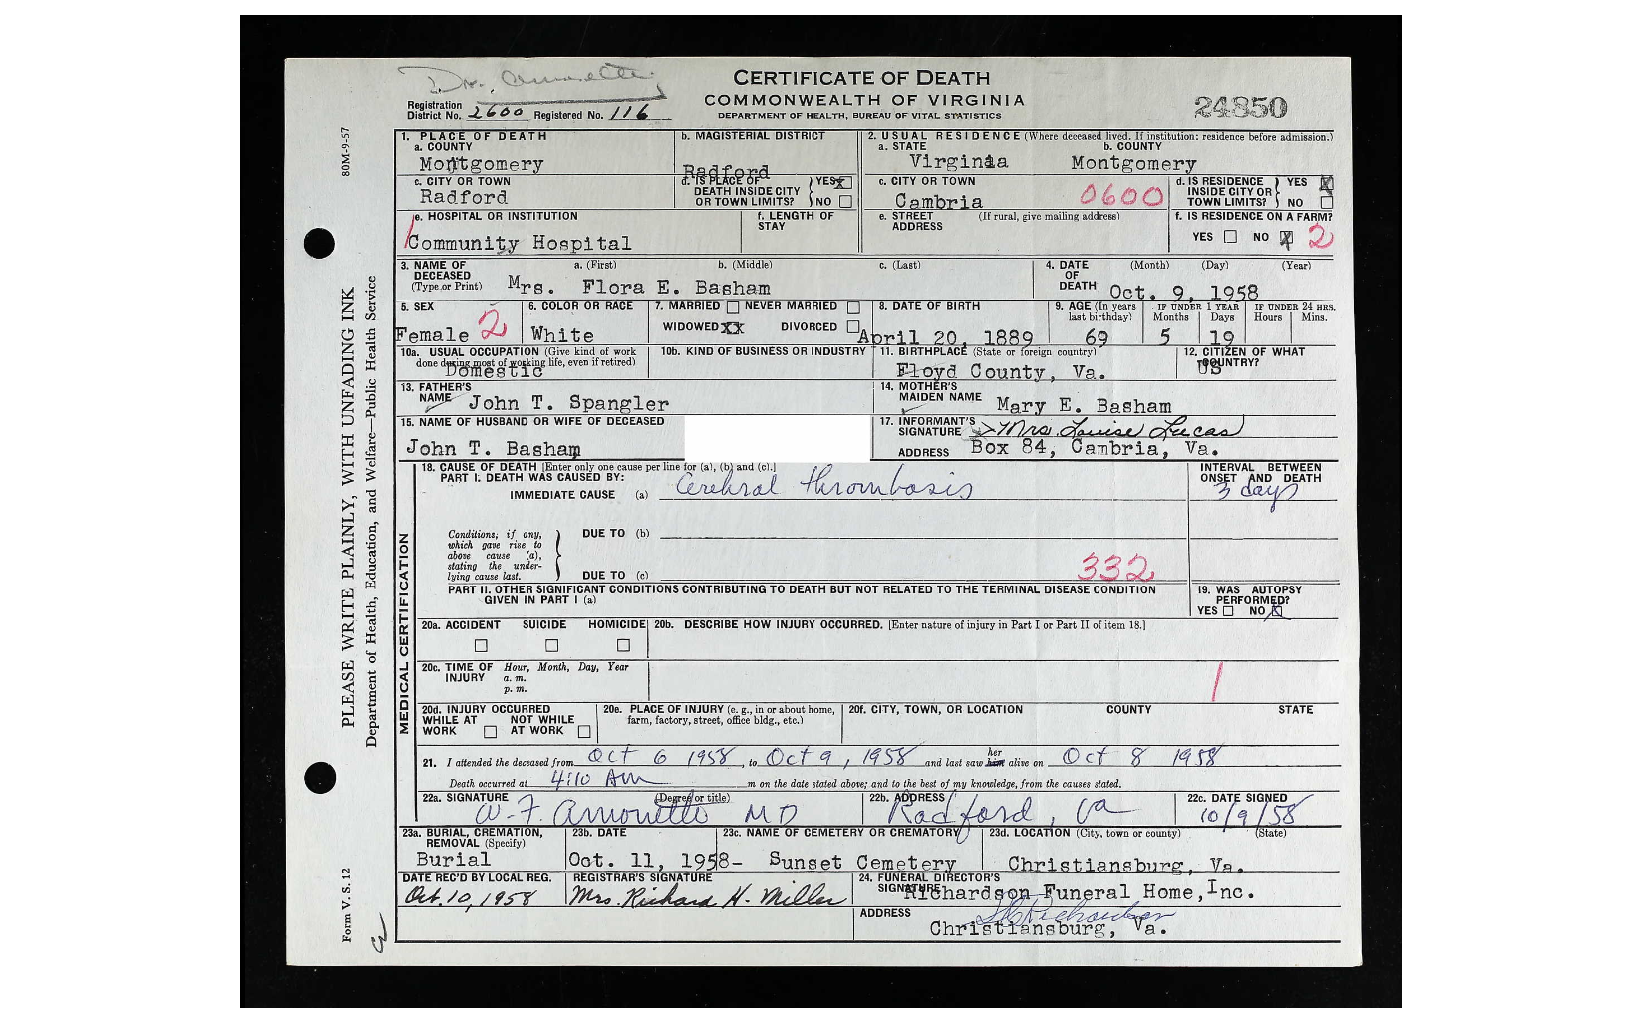 Dr. Amonette
CERTIFICATE OF DEATH
COMMONWEALTH OF VIRGINIA
DEPARTMENT OF HEALTH, BUREAU OF VITAL STATISTICS
24850
Registration District No. 2600 Registered No. 116
80M-9-57
1. PLACE OF DEATH
a. COUNTY
Montgomery
b. MAGISTERIAL DISTRICT
Radford
2. USUAL RESIDENCE (Where deceased lived. If institution: residence before admission.)
a. STATE
Virginia
b. COUNTY
Montgomery
c. CITY OR TOWN
Radford
d. IS PLACE OF DEATH INSIDE CITY OR TOWN LIMITS? YES NO
c. CITY OR TOWN
Cambria
0600
d. IS RESIDENCE INSIDE CITY OR TOWN LIMITS? YES NO
e. HOSPITAL OR INSTITUTION
Community Hospital
f. LENGTH OF STAY
e. STREET ADDRESS (If rural, give mailing address)
f. IS RESIDENCE ON A FARM?
YES NO 2
3. NAME OF DECEASED (Type or Print)
a. (First) b. (Middle) c. (Last)
Mrs. Flora E. Basham
4. DATE OF DEATH (Month) (Day) (Year)
Oct. 9, 1958
5. SEX
Female 2
6. COLOR OR RACE
White
7. MARRIED NEVER MARRIED
WIDOWED XX DIVORCED
8. DATE OF BIRTH
April 20, 1889
9. AGE (In years last birthday)
69
IF UNDER 1 YEAR Months Days
5 19
IF UNDER 24 HRS. Hours Mins.
10a. USUAL OCCUPATION (Give kind of work done during most of working life, even if retired)
Domestic
10b. KIND OF BUSINESS OR INDUSTRY
11. BIRTHPLACE (State or foreign country)
Floyd County, Va.
12. CITIZEN OF WHAT COUNTRY?
US
13. FATHER'S NAME
John T. Spangler
14. MOTHER'S MAIDEN NAME
Mary E. Basham
15. NAME OF HUSBAND OR WIFE OF DECEASED
John T. Basham
17. INFORMANT'S SIGNATURE Mrs. Louise Lucas
ADDRESS Box 84, Cambria, Va.
18. CAUSE OF DEATH [Enter only one cause per line for (a), (b) and (c).]
PART I. DEATH WAS CAUSED BY:
IMMEDIATE CAUSE (a) Cerebral thrombosis
INTERVAL BETWEEN ONSET AND DEATH
3 days
Conditions, if any, which gave rise to above cause (a), stating the underlying cause last.
DUE TO (b)
DUE TO (c)
332
PART II. OTHER SIGNIFICANT CONDITIONS CONTRIBUTING TO DEATH BUT NOT RELATED TO THE TERMINAL DISEASE CONDITION GIVEN IN PART I (a)
19. WAS AUTOPSY PERFORMED?
YES NO
20a. ACCIDENT SUICIDE HOMICIDE
20b. DESCRIBE HOW INJURY OCCURRED. [Enter nature of injury in Part I or Part II of item 18.]
20c. TIME OF INJURY Hour, Month, Day, Year
a. m.
p. m.
1
20d. INJURY OCCURRED
WHILE AT WORK NOT WHILE AT WORK
20e. PLACE OF INJURY (e. g., in or about home, farm, factory, street, office bldg., etc.)
20f. CITY, TOWN, OR LOCATION COUNTY STATE
21. I attended the deceased from Oct 6 1958, to Oct 9, 1958 and last saw him her alive on Oct 8 1958
Death occurred at 4:10 AM m on the date stated above; and to the best of my knowledge, from the causes stated.
22a. SIGNATURE (Degree or title)
W. F. Amonette MD
22b. ADDRESS
Radford, Va
22c. DATE SIGNED
10/9/58
23a. BURIAL, CREMATION, REMOVAL (Specify)
Burial
23b. DATE
Oct. 11, 1958-
23c. NAME OF CEMETERY OR CREMATORY
Sunset Cemetery
23d. LOCATION (City, town or county) (State)
Christiansburg, Va.
DATE REC'D BY LOCAL REG.
Oct. 10, 1958
REGISTRAR'S SIGNATURE
Mrs. Richard H. Miller
24. FUNERAL DIRECTOR'S SIGNATURE
Richardson Funeral Home, Inc.
ADDRESS
Christiansburg, Va.
MEDICAL CERTIFICATION
PLEASE WRITE PLAINLY, WITH UNFADING INK
Department of Health, Education, and Welfare—Public Health Service
Form V. S. 12